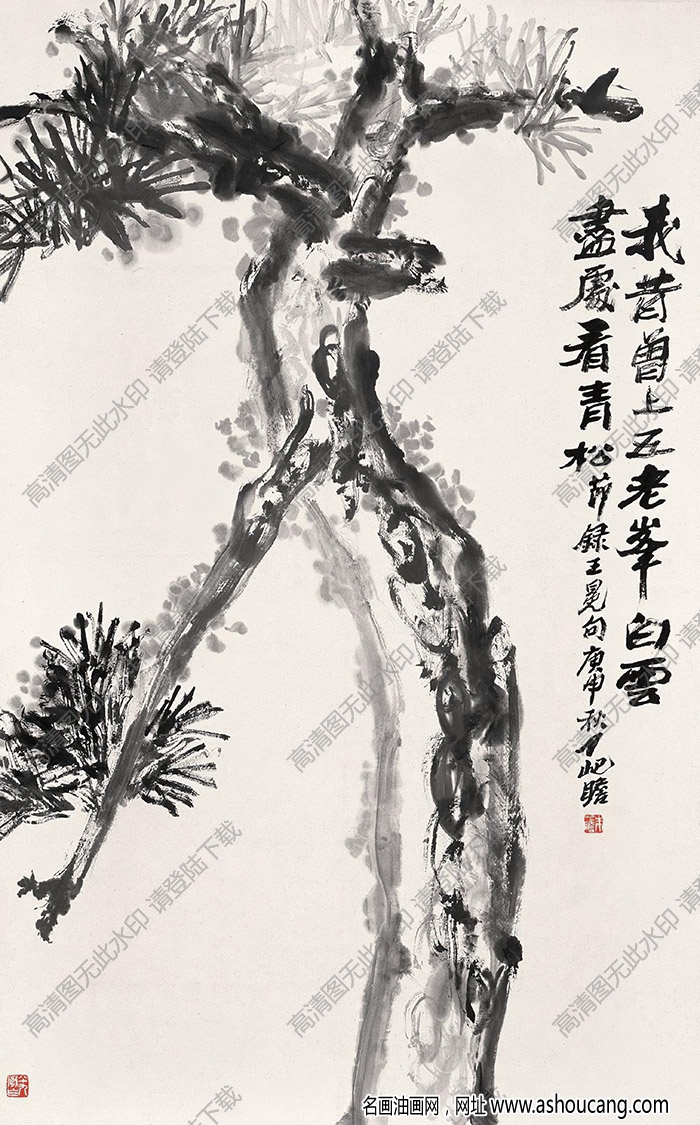 我昔曾上五老峯白雲
盡處看青松
節録王冕句庚申秋下屺瞻
高清图无此水印 请登陆下载
名画油画网，网址 www.ashoucang.com